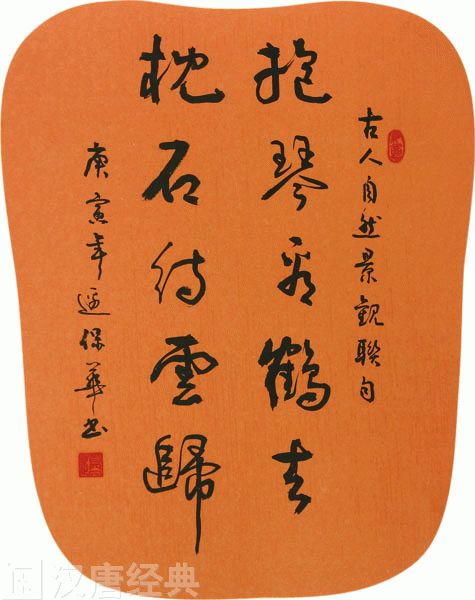 古人自然景觀聯句
抱琴看鶴去
枕石待雲歸
庚寅年邊保華书
汉唐经典